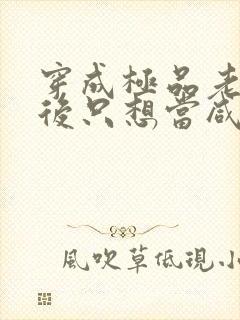 穿成極品老
後只想當咸
風吹草低現小